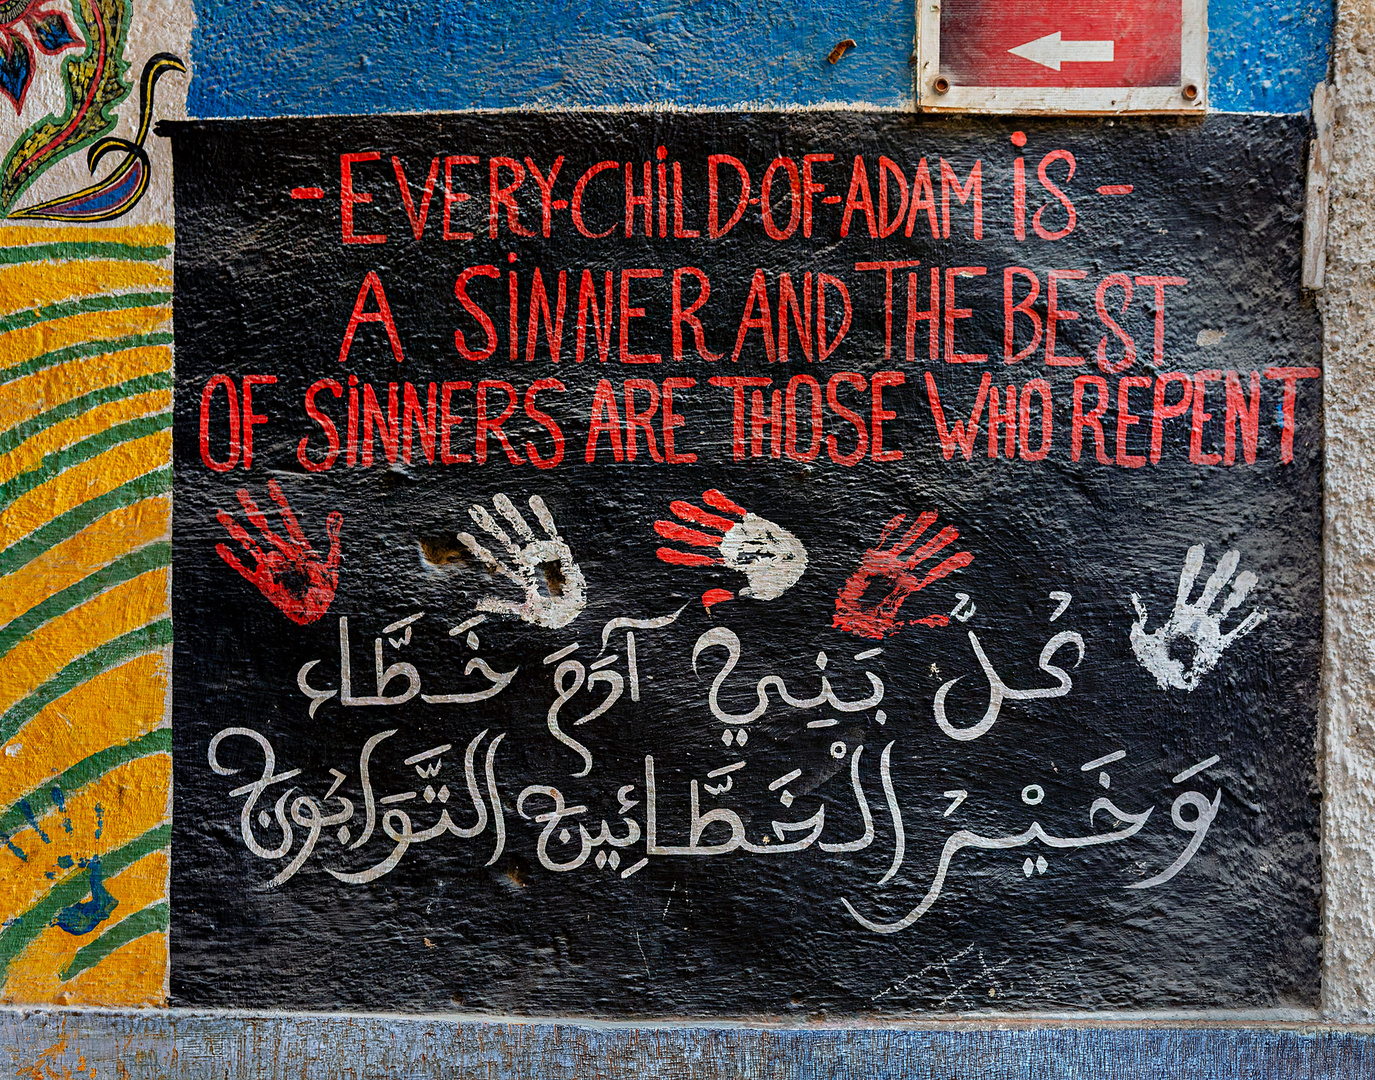 -EVERY-CHiLD-OF-ADAM iS-
A SiNNER AND THE BEST
OF SiNNERS ARE THOSE WHO REPENT
كُلُّ بَنِي آدَمَ خَطَّاء
وَخَيْرُ الْخَطَّائِينَ التَّوَابُونَ